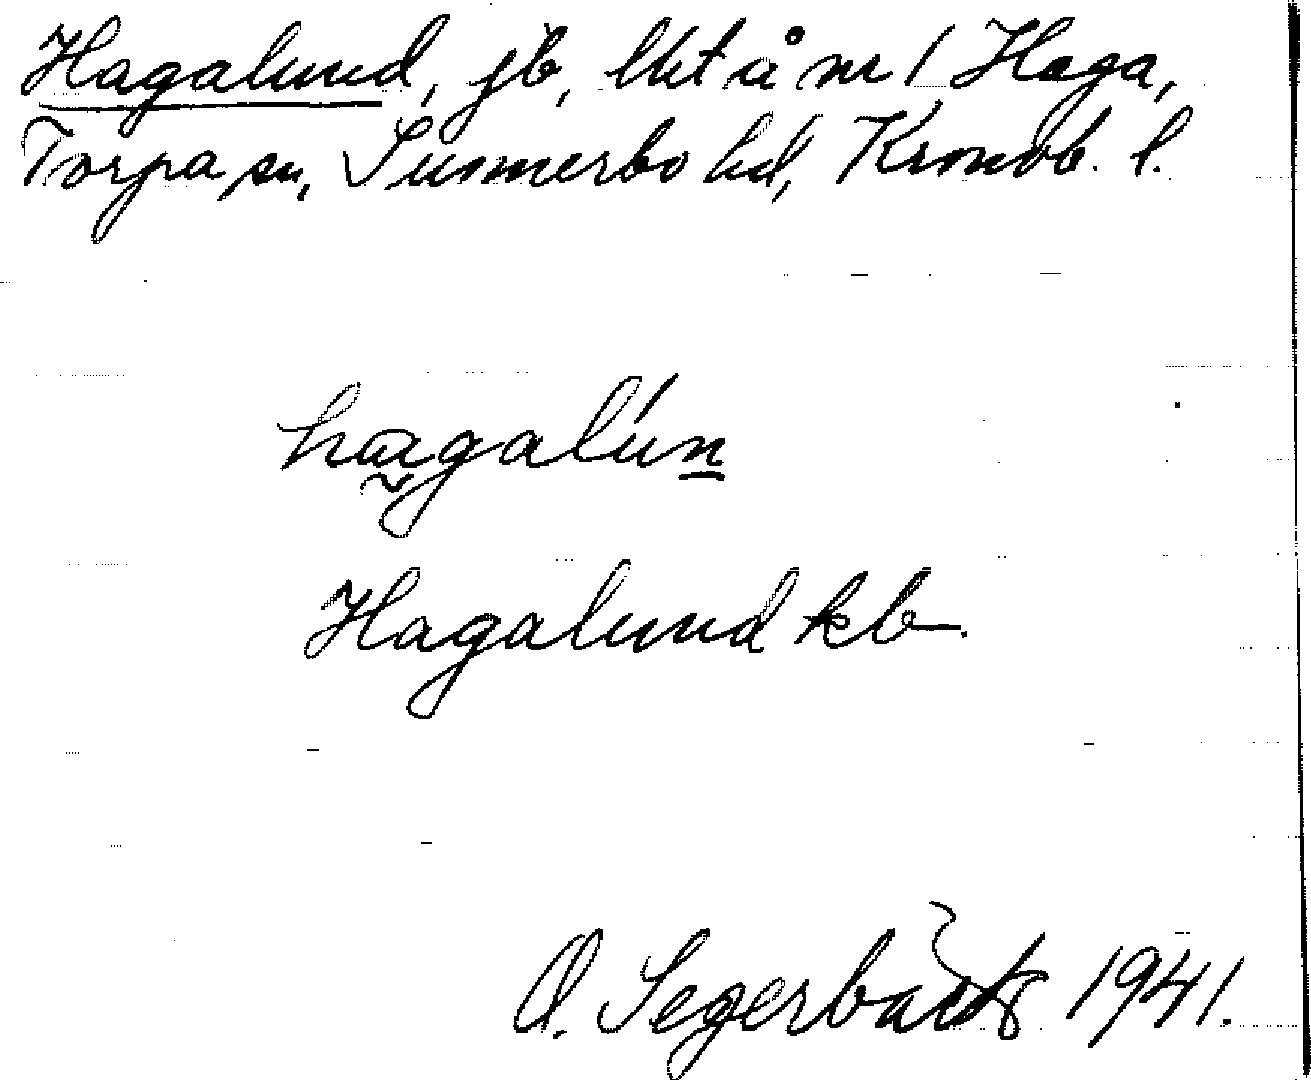 Hagalund, jb, lht å nr 1 Haga,
Torpa sn, Sunnerbo hd, Kronob. l.
hagalún
Hagalund kb.
O. Segerbäck 1941.